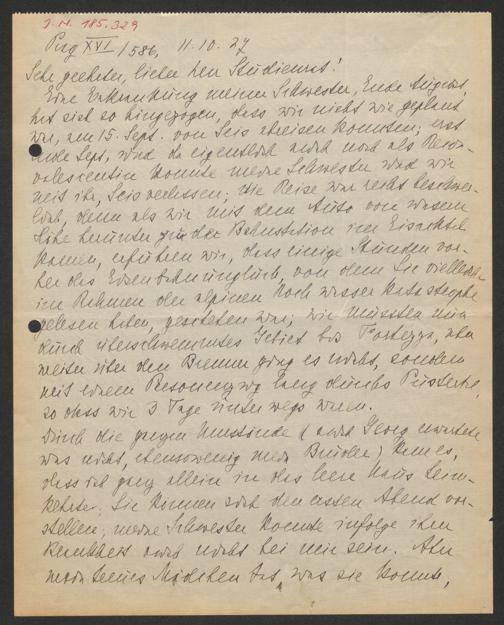 I.N. 185.329
Prag XVI/586, 11.10.27
Sehr geehrter, lieber Herr Studienrat!
Eine Erkrankung meiner Schwester, Ende August,
hat sich so hingezogen, dass wir nicht wie geplant
war, am 15. Sept. von Seis abreisen konnten; erst
Ende Sept, und da eigentlich auch noch als Rekon-
valescentin konnte meine Schwester und wir
mit ihr, Seis verlassen; die Reise war recht beschwer-
lich, denn als wir mit dem Auto von unserer
Höhe herunter zu der Bahnstation im Eisacktal
kamen, erfuhren wir, dass einige Stunden vor-
her das Eisenbahnunglück, von dem Sie vielleicht
im Rahmen der alpinen Hochwasser Katastrophe
gelesen haben, geschehen war; wir mussten nun
durch überschwemmtes Gebiet bis Fortezza, aber
weiter über den Brenner ging es nicht, sondern
mit einem Reservezug lang durchs Pustertal,
so dass wir 3 Tage unterwegs waren.
Durch die Umstände (auch Georg erwartete
uns nicht, ebensowenig mein Bruder) kam es,
dass ich ganz allein in das leere Haus heim-
kehrte; Sie können sich den ersten Abend vor-
stellen; meine Schwester konnte infolge ihrer
Krankheit auch nicht bei mir sein. Aber
mein Mädchen tat, was sie konnte,